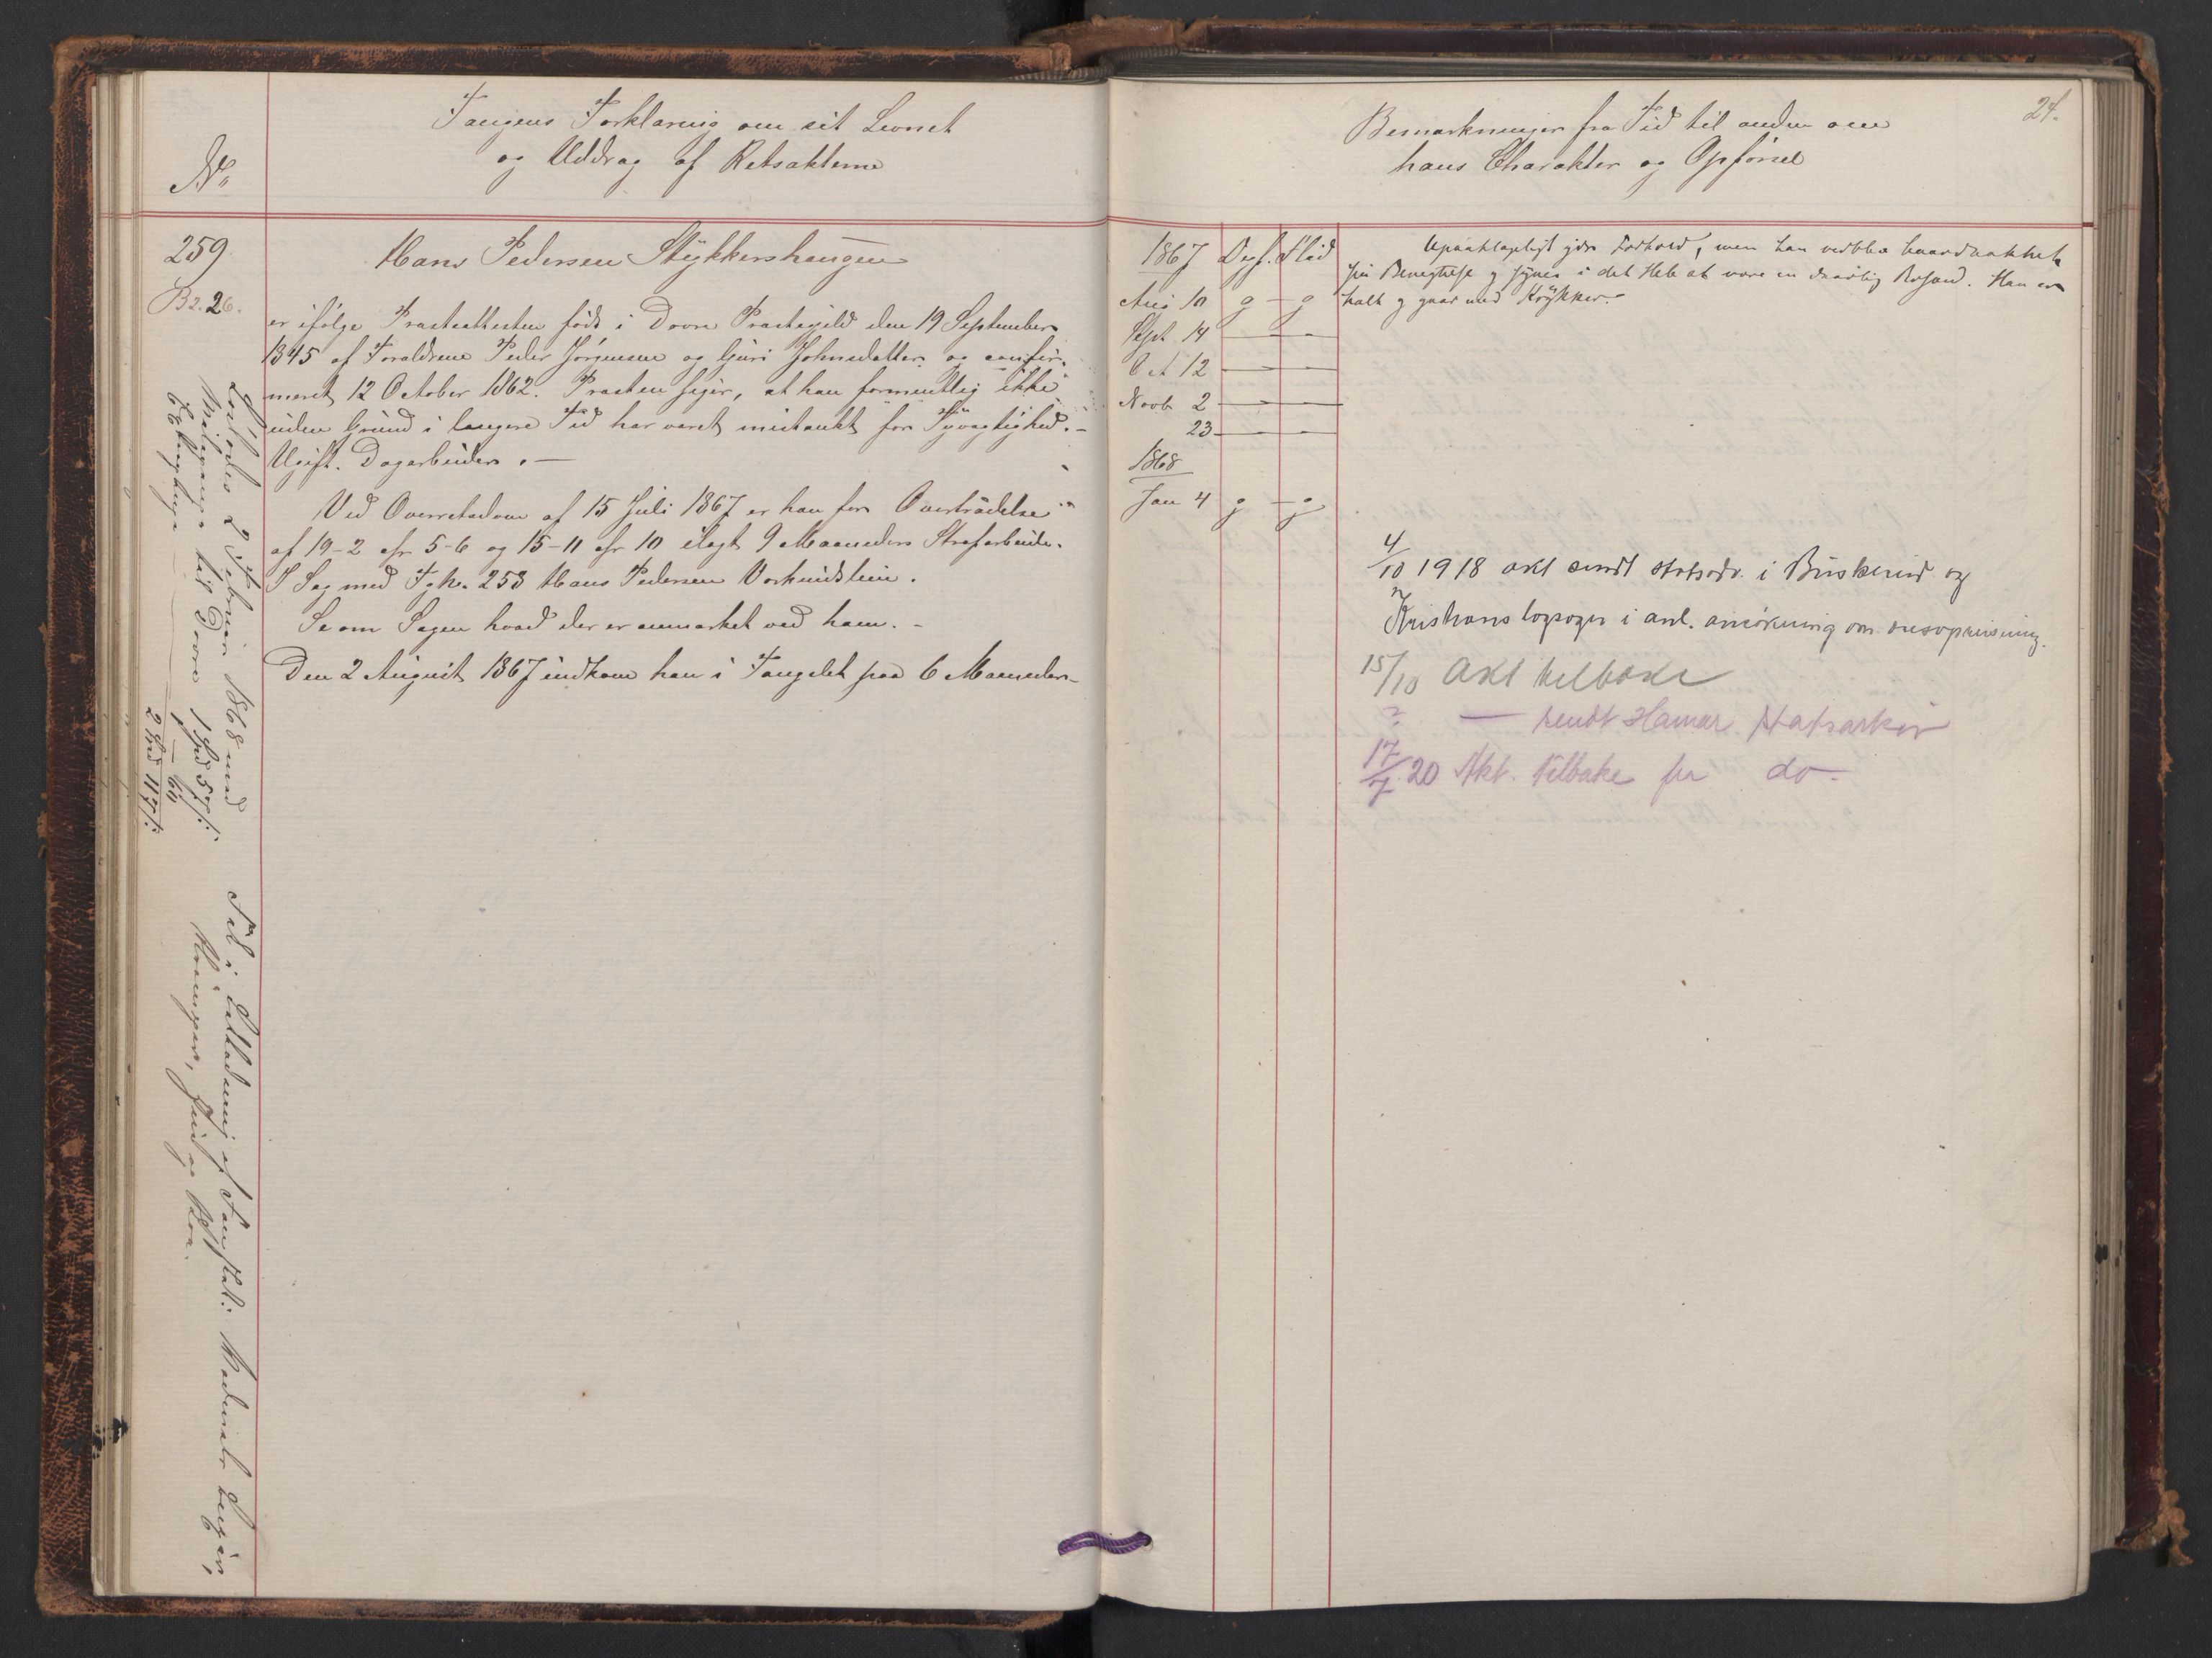 No
Fangens Forklaring om sit Levnet
og Uddrag af Retsakterne
259
B2. 26.
Hans Pedersen Stykkershaugen
er ifölge Præsteattesten född i Dovre Præstegjeld den 19 September
1845 af Forældrene Peder Jörgensen og Guri Johnsdatter og confir-
meret 12 October 1862. Præsten siger, at han formentlig ikke
uden Grund i længere Tid har været mistænkt for Tyvagtighed. -
Ugift. Dagarbeider. -
Ved Overretsdom af 15 Juli 1867 er han for Overtrædelse
af 19-2 cfr 5-6 og 15-11 cfr 10 ilagt 9 Maaneders Strafarbeide.
I Sag med Fg No. 258 Hans Pedersen Vorkindslien.
Se om Sagen hvad der er anmærket ved ham. -
Den 2 August 1867 indkom han i Fangslet paa 6 Maaneder -
Löslodes 2 Februar 1868 med
Reisepenge til Dovre 1 Spd 57 s:
1 - 60
2 Spd 117 s:
Fik i Udladning af Fangslet:
24.
Bemærkninger fra Tid til anden om
hans Charakter og Opförsel
1867 Opf. Flid
Aug 10 g - g
Sept. 14 — —
Oct 12 — —
Novb 2 — —
23 — —
1868
Jan 4 g - g
Upaaklageligt ydre Forhold, men han vedblev haardnakket
sin Benegtelse og synes i det Hele at være en daarlig Person. Han er
halt og gaar med Krykker. -
4/10 1918 akt sendt statsadv. i Buskerud og
Kristians lagsogn i anl. ansökning om æresopreisning.
15/10 akt tilbake
? — sendt Hamar Statsarkiv
17/7 20 Akt. tilbake fra do -